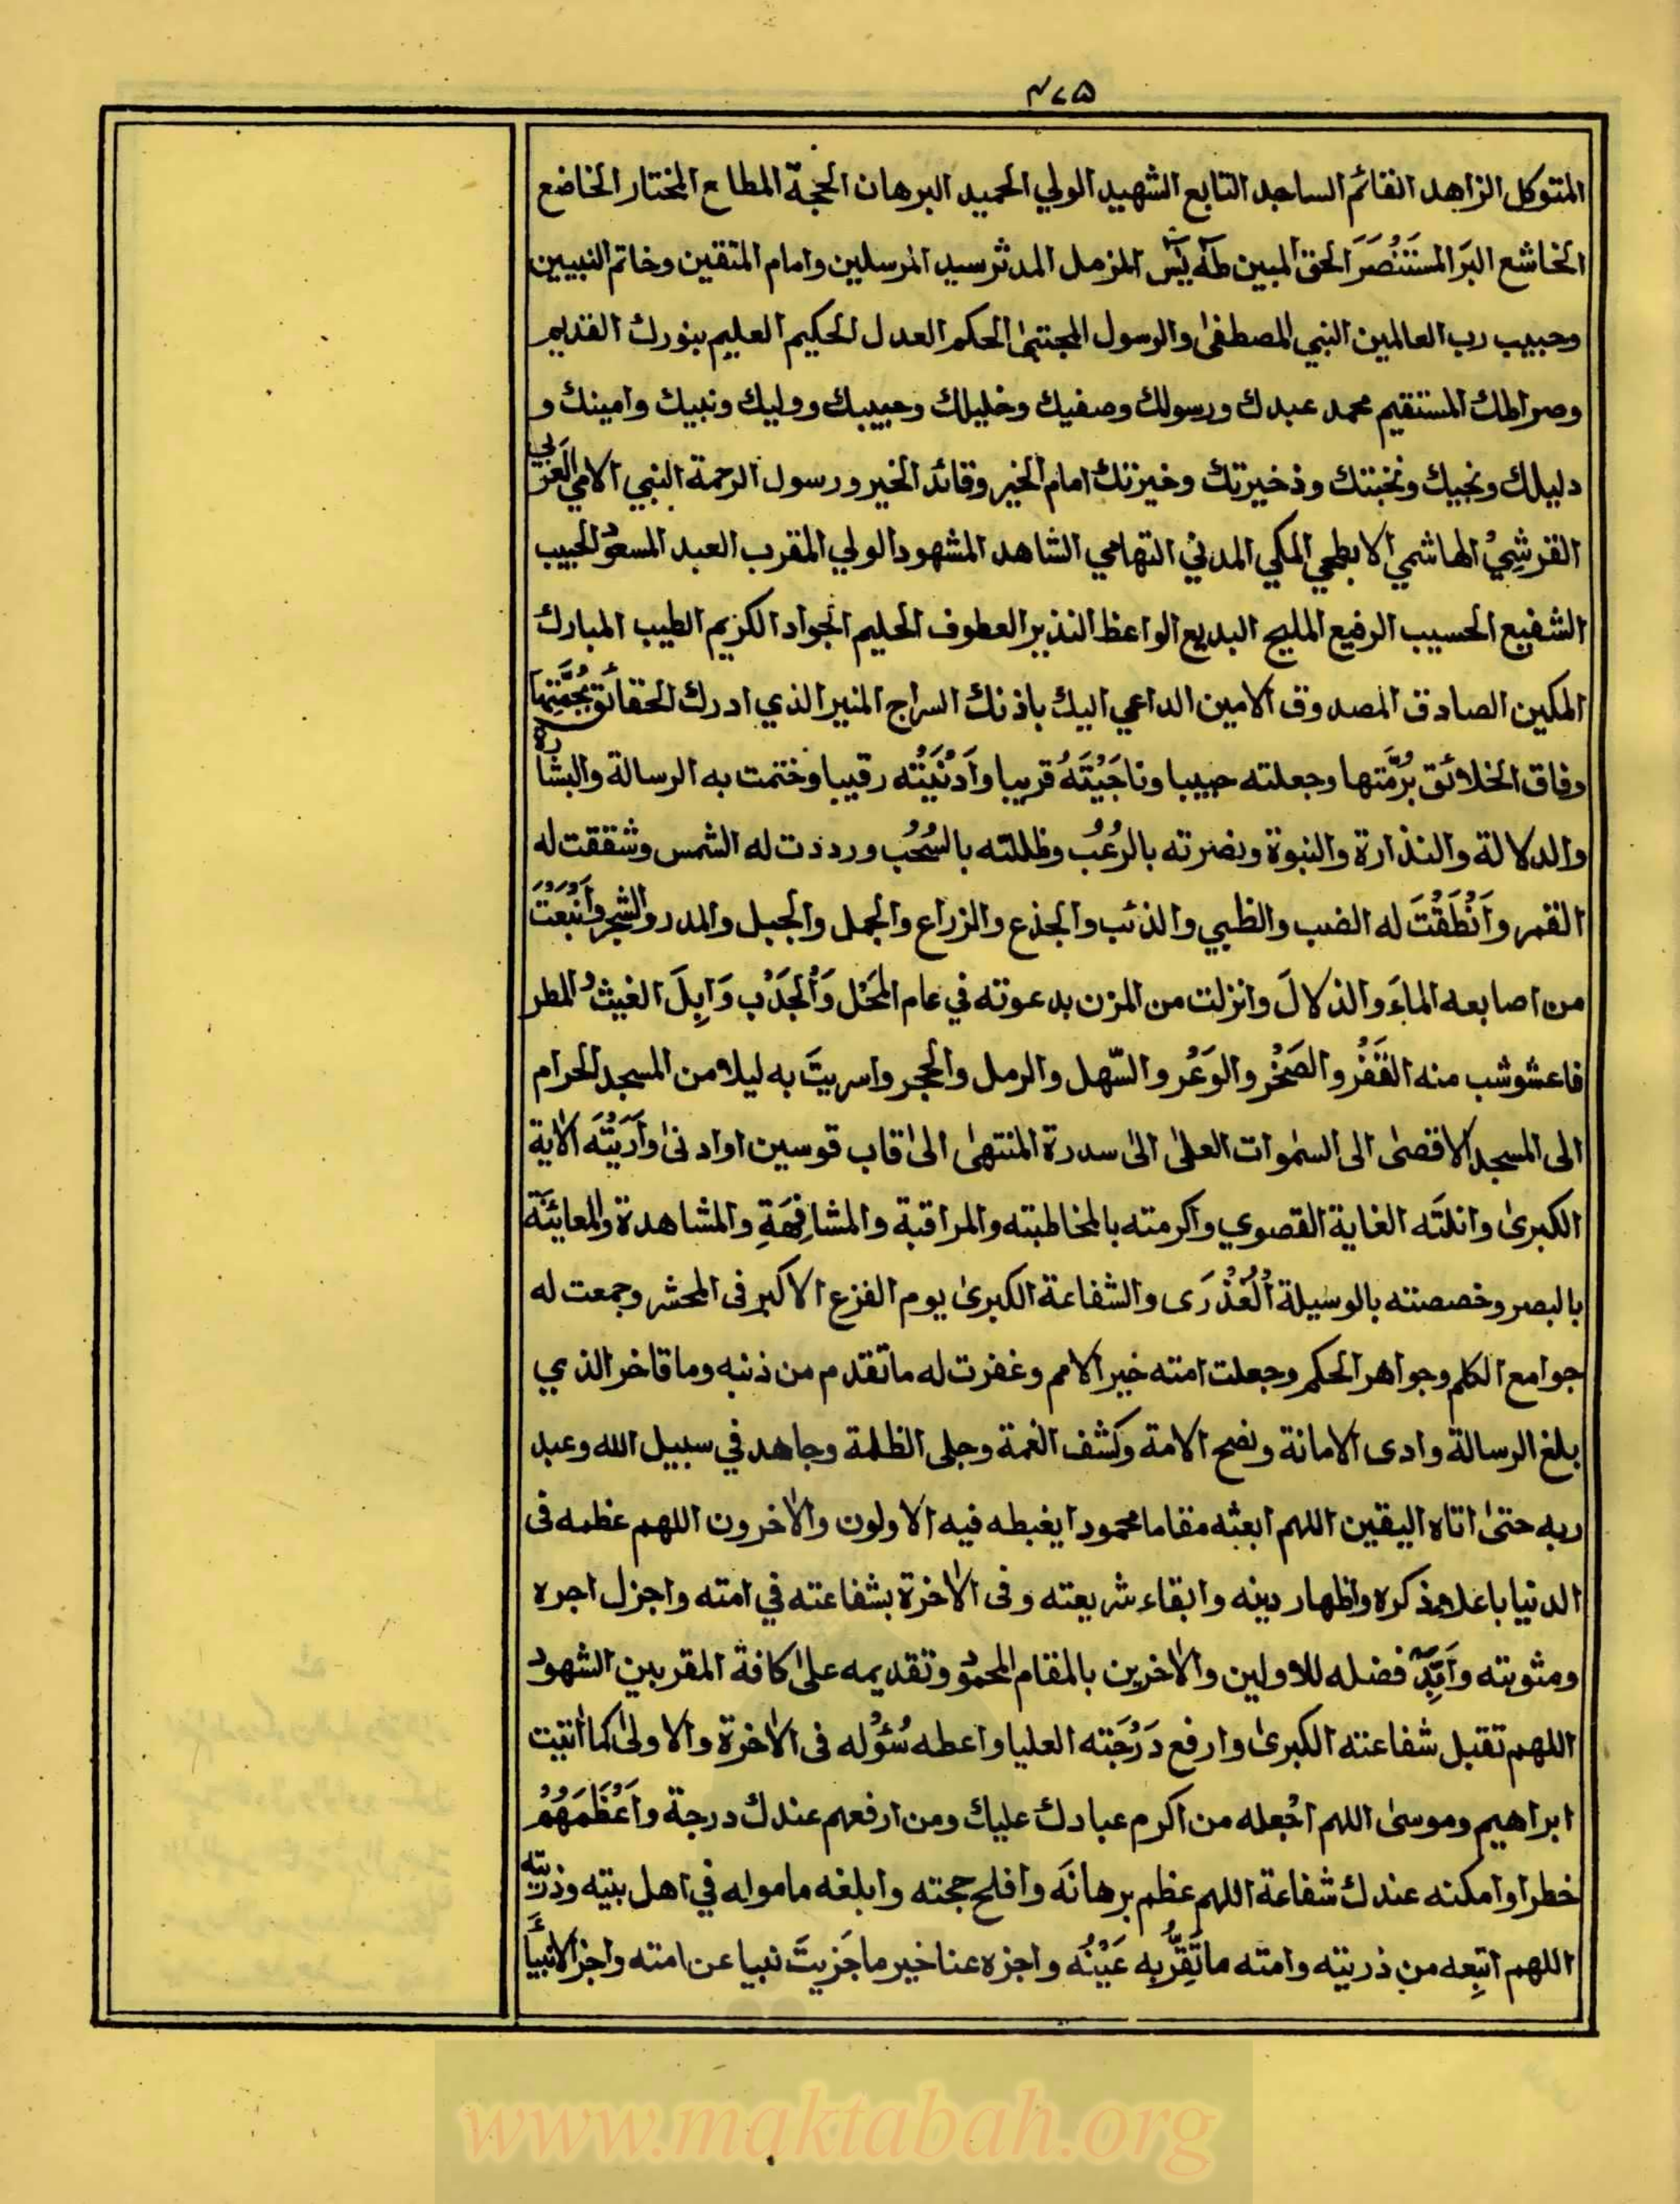 ۴۷۵
المتوكل الزاهد القائم الساجد التابع الشهيد الولي الحميد البرهان الحجة المطاع المختار الخاضع
الخاشع البرَ المستَنْصَرَ الحق المبين طٰهٰ يٰس المزمل المدثر سيد المرسلين وامام المتقين وخاتم النبيين
وحبيب رب العالمين النبي المصطفٰى والرسول المجتبٰى الحكم العدل الحكيم العليم بنورك القديم
وصراطك المستقيم محمد عبدك ورسولك وصفيك وخليلك وحبيبك ووليك ونبيك وامينك و
دليلك ونجيك ونخبتك وذخيرتك وخيرتك امام الخير وقائد الخير ورسول الرحمة النبي الامي العَرَبي
القرشِيْ الهاشمي الابطحي المكي المدني التهامي الشاهد المشهود الولي المقرب العبد المسعود الحبيب
الشفيع الحسيب الرفيع المليح البديع الواعظ النذير العطوف الحليم الجواد الكريم الطيب المبارك
المكين الصادق المصدوق الامين الداعي اليك باذنك السراج المنير الذي ادرك الحقائق بحُجَّتِها
وفاق الخلائق بُرمَّتها وجعلته حبيبا وناجَيْتَهُ قريبا وَاَدْنَيْتُه رقيبا وختمت به الرسالة والبشارة
والدلالة والنذارة والنبوة ونصرته بالرُعُب وظللته بالسُحُب ورددت له الشمس وشققت له
القمر وَاَنْطَقْتَ له الضب والظبي والذئب والجذع والزراع والجمل والجبل والمدر والشجر وَاَنْبَعْتَ
من اصابعه الماءَ والذلالَ وانزلت من المزن بدعوته في عام المَحَل وَالْجَدْب وَابِلَ الغيث والمطر
فاعشوشب منه القَفْرُ والصَخْر والوَعْر والسّهل والرمل والحجر واسريتَ به ليلا من المسجد الحرام
الى المسجد الاقصىٰ الى السمٰوات العلىٰ الىٰ سدرة المنتهىٰ الىٰ قاب قوسين او ادنىٰ وَاَرَيْتَه الاية
الكبرىٰ وانلتَه الغاية القصوي واكرمته بالمخاطبته والمراقبة والمشافِهَةِ والمشاهدة والمعائنَة
بالبصر وخصصته بالوسيلة اُلْعُذْرَى والشفاعة الكبرىٰ يوم الفزع الاكبر فى المحشر وجمعت له
جوامع الكلم وجواهر الحكم وجعلت امته خير الامم وغفرت له ما تقدم من ذنبه وما تاخر الذي
بلغ الرسالة وادى الامانة ونصح الامة وكشف الغمة وجلى الظلمة وجاهد في سبيل الله وعبد
ربه حتىٰ اتاه اليقين اللهم ابعثه مقاما محمودا يغبطه فيه الاولون والاٰخرون اللهم عظمه فى
الدنيا باعلاء ذكره واظهار دينه وابقاء شريعته وفى الاٰخرة بشفاعته في امته واجزل اجره
ومثوبته واَبِّدّ فضله للاولين والاٰخرين بالمقام المحمود وتقديمه علىٰ كافة المقربين الشهود
اللهم تقبل شفاعته الكبرىٰ وارفع دَرَجَته العليا واعطه سُؤْله فى الاٰخرة والاولىٰ كما اٰتيت
ابراهيم وموسىٰ اللهم اجْعله من اكرم عبادك عليك ومن ارفعهم عندك درجة واَعْظَمَهُمْ
خطرا وامكنه عندك شفاعة اللهم عظم برهانَه وافلج حجته وابلغه ماموله في اهل بيته وذريته
اللهم اتبِعه من ذريته وامته ما تَقِرُّ به عَيْنُه واجزه عنا خير ما جَزيتَ نبيا عن امته واجز الانبياَٴ
www.maktabah.org